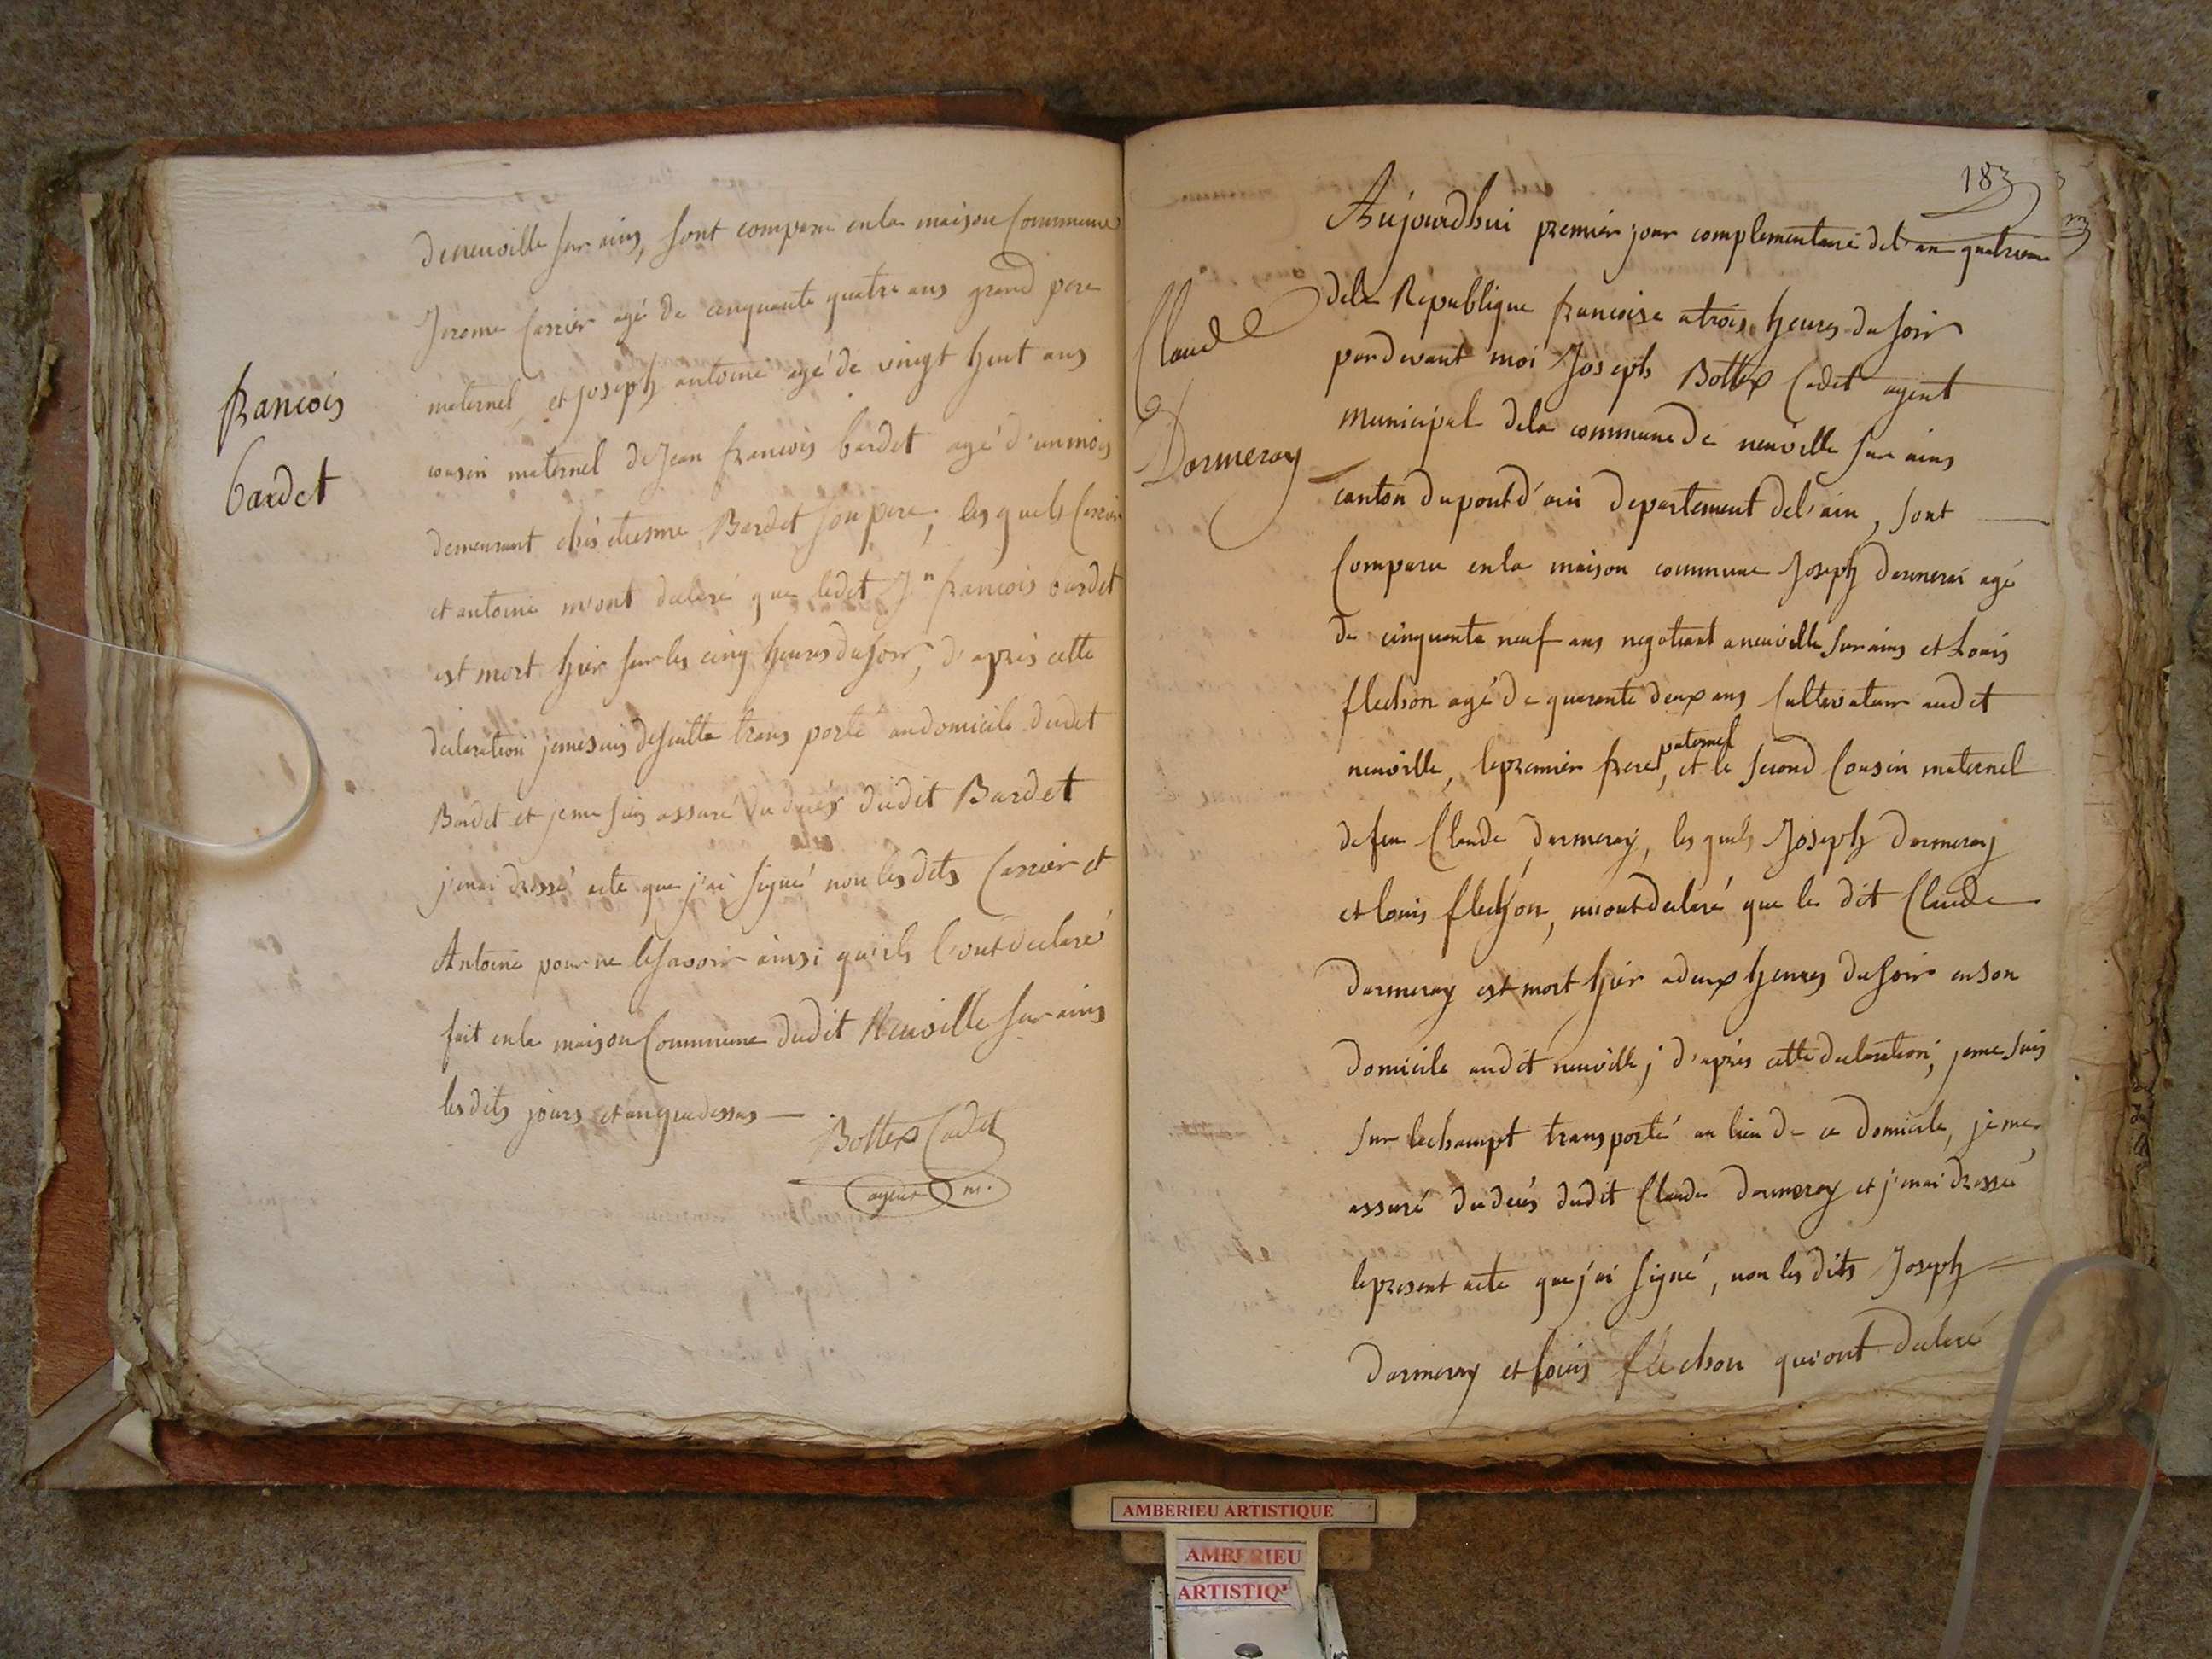 francois
bardet
de neuville sur ains, sont comparu en la maison Commune
Jerome Carrier agé de cinquante quatre ans grand pere
maternel, et joseph antoine agé de vingt huit ans
cousin maternel de Jean francois bardet agé d'un mois
demeurant chés etienne Bardet son pere, les quels Carrier
et antoine m'ont declaré que ledit Jn francois bardet
est mort hier sur les cinq heures du soir, d'après cette
declaration je me suis desuitte trans porté au domicile dudit
Bardet et je me suis assuré du decés dudit Bardet
j'en ai dressé acte que j'ai signé non les dits Carrier et
Antoine pour ne le savoir ainsi qu'ils l'ont declaré
fait en la maison Commune dudit Neuville sur ains
les dits jours et an que dessus —
Bottex Cadet
agent m.
183
Claude
Dormeray
Aujourdhui premier jour complementaire de l'an quatrieme
de la Republique francoise a trois heures du soir
pardevant moi Joseph Bottex Cadet agent
municipal de la commune de neuville sur ains
canton du pont d'ain departement de l'ain, sont
Comparu en la maison commune Joseph dormerai agé
de cinquante neuf ans negotiant a neuville sur ains et Louis
flechon agé de quarante deux ans Cultivateur audit
neuville, le premier frere paternel, et le second Cousin maternel
de feu Claude dormeray, les quels Joseph dormeray
et louis flechon, m'ont declaré que le dit Claude
dormeray est mort hier a deux heures du soir en son
domicile audit neuville; d'après cette declaration, je me suis
sur le champt transporté au lieu de ce domicile, je me
assuré du decés dudit Claude dormeray et j'en ai dressé
le present acte que j'ai signé, non les dits Joseph
dormeray et louis flechon qui ont declaré
AMBERIEU ARTISTIQUE
AMBERIEU
ARTISTIQU